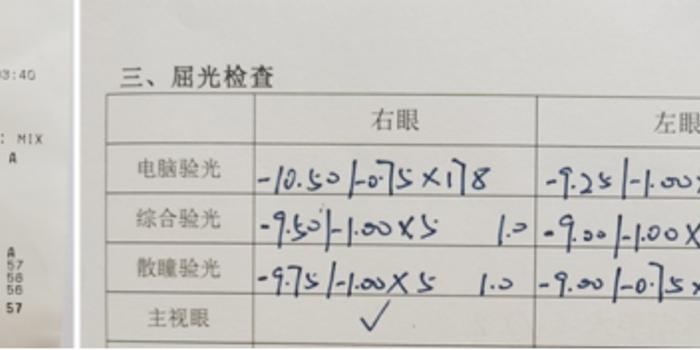 3:40
: MIX
A
A
57
58
56
57
三、屈光检查
右眼 左眼
电脑验光 -10.50/-0.75×178 -9.25/-1.00
综合验光 -9.50/-1.00×5 1.0 -9.00/-1.00×
散瞳验光 -9.75/-1.00×5 1.0 -9.00/-0.75×
主视眼 ✓